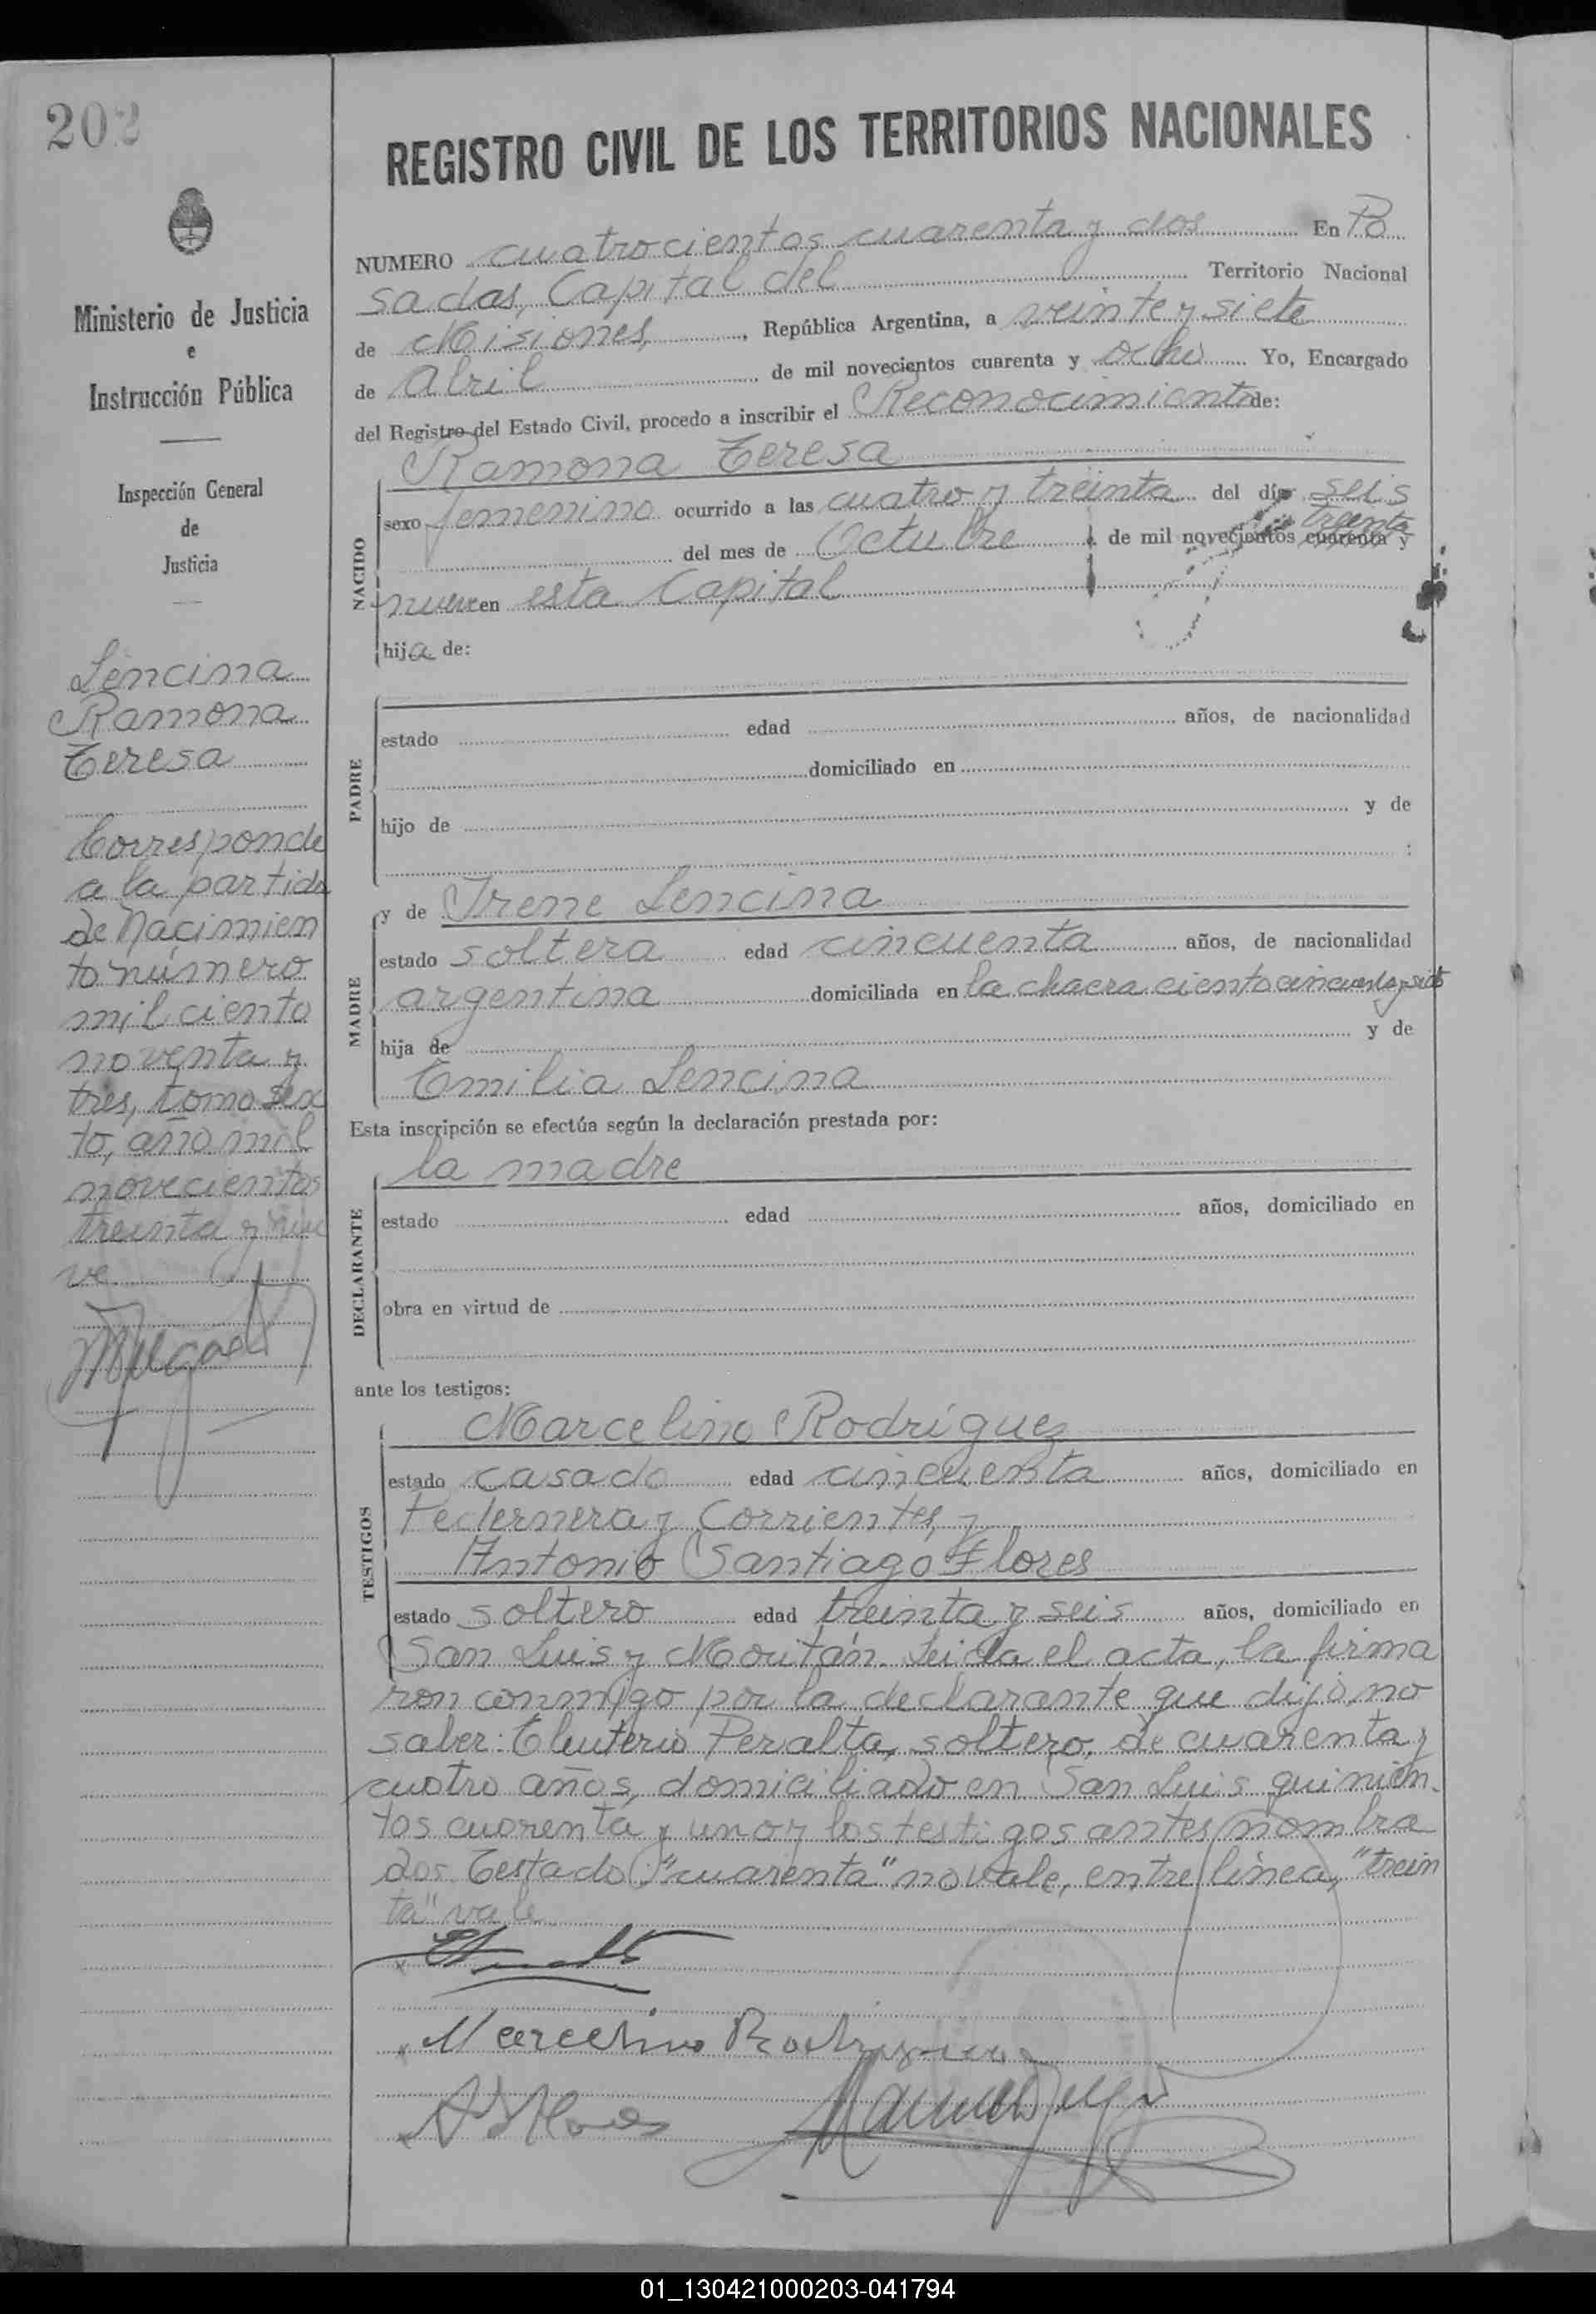 202
Ministerio de Justicia
e
Instrucción Pública
Inspección General
de
Justicia
Lencina
Ramona
Teresa
Corresponde
a la partida
de Nacimien
to número
mil ciento
noventa y
tres, tomo sex
to, año mil
novecientos
treinta y nue
ve
REGISTRO CIVIL DE LOS TERRITORIOS NACIONALES
NUMERO cuatrocientos cuarenta y dos En Po
sadas, Capital del Territorio Nacional
de Misiones, República Argentina, a veinte y siete
de abril de mil novecientos cuarenta y ocho Yo, Encargado
del Registro del Estado Civil, procedo a inscribir el Reconocimiento de:
Ramona Teresa
NACIDO
sexo femenino ocurrido a las cuatro y treinta del día seis
treinta
del mes de Octubre de mil novecientos cuarenta y
nueve en esta Capital
hija de:
PADRE
estado edad años, de nacionalidad
domiciliado en
hijo de y de
:
MADRE
y de Irene Lencina
estado soltera edad cincuenta años, de nacionalidad
argentina domiciliada en la chacra ciento cincuenta y siete
hija de y de
Emilia Lencina
Esta inscripción se efectúa según la declaración prestada por:
la madre
DECLARANTE
estado edad años, domiciliado en
obra en virtud de
ante los testigos:
TESTIGOS
Marcelino Rodríguez
estado casado edad cincuenta años, domiciliado en
Pedernera y Corrientes, y
Antonio Santiago Flores
estado soltero edad treinta y seis años, domiciliado en
San Luis y Moritán. Leida el acta, la firma
ron conmigo por la declarante que dijo no
saber: Eleuterio Peralta, soltero, de cuarenta y
cuatro años, domiciliado en San Luis quinien
tos cuarenta y uno y los testigos antes nombra
dos. Testado: "cuarenta" no vale, entre línea, "trein
ta" vale
Marcelino Rodriguez
A S Flores
01_130421000203-041794